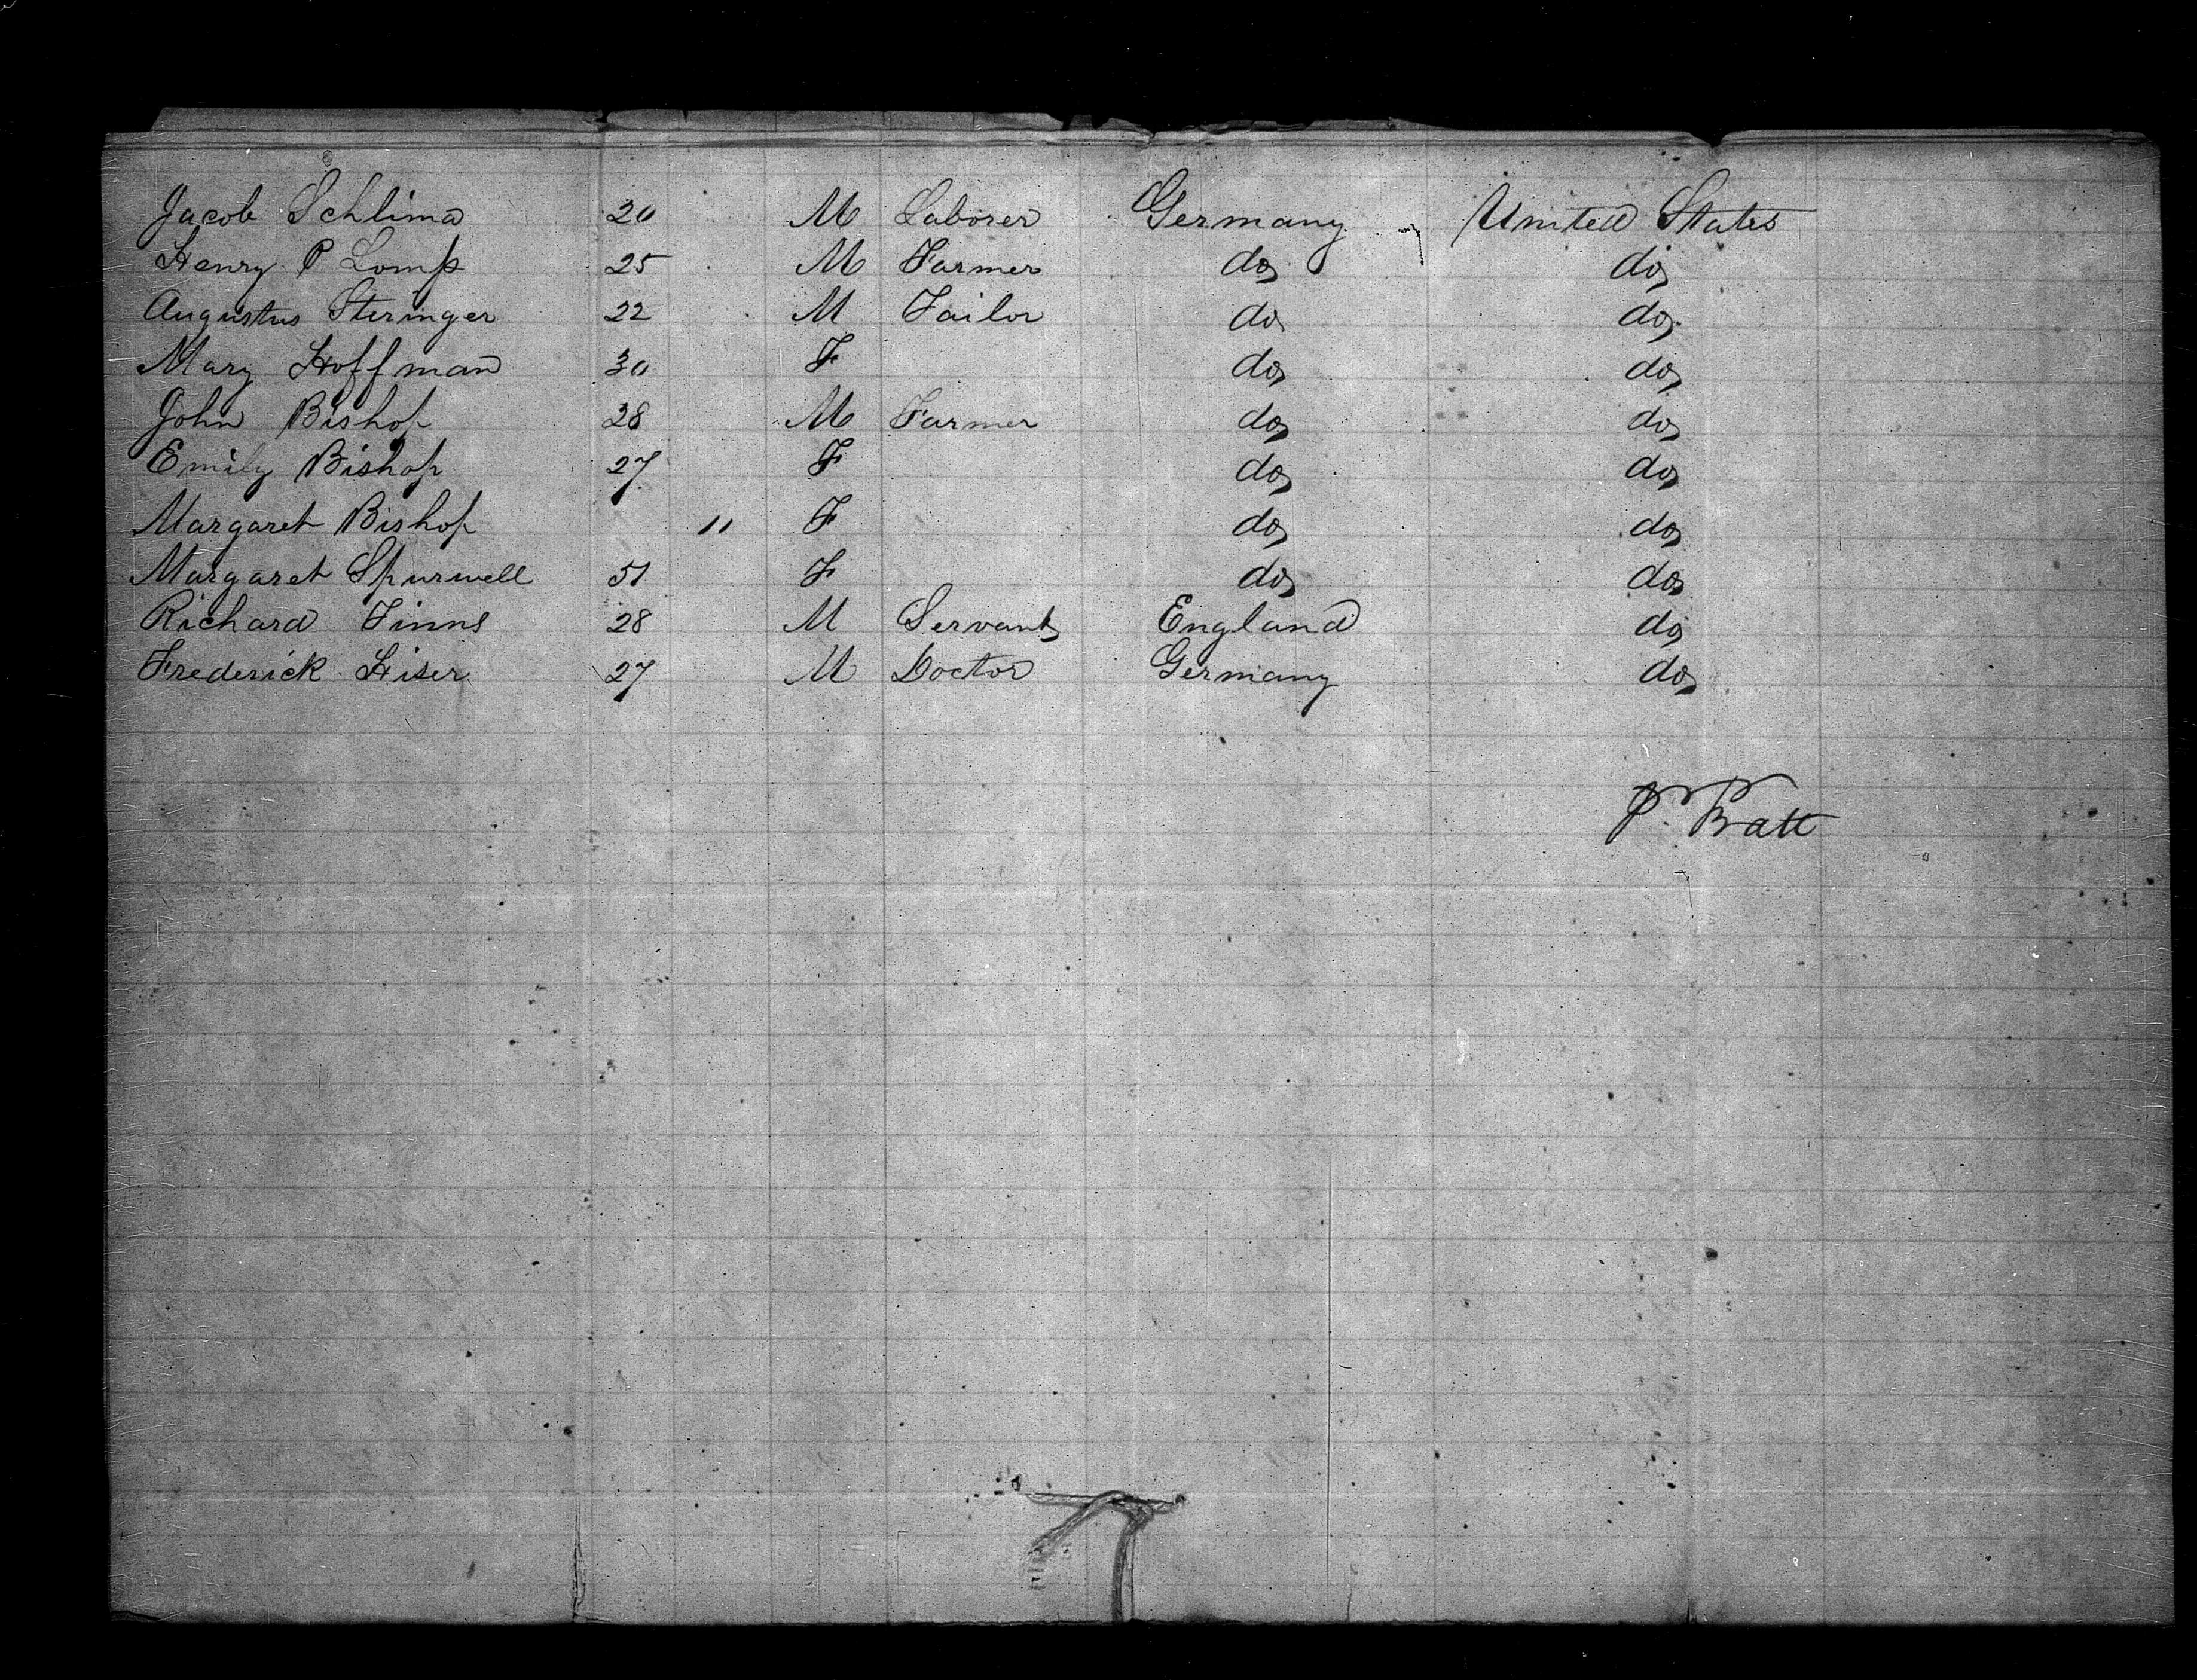 Jacob Schlima 20 M Laborer Germany United States
Henry P Lomp 25 M Farmer do do
Augustus Steringer 22 M Tailor do do
Mary Hoffman 30 F do do
John Bishop 28 M Farmer do do
Emily Bishop 27 F do do
Margaret Bishop 11 F do do
Margaret Spurwell 51 F do do
Richard Finns 28 M Servant England do
Frederick Hiser 27 M Doctor Germany do
P. Pratt